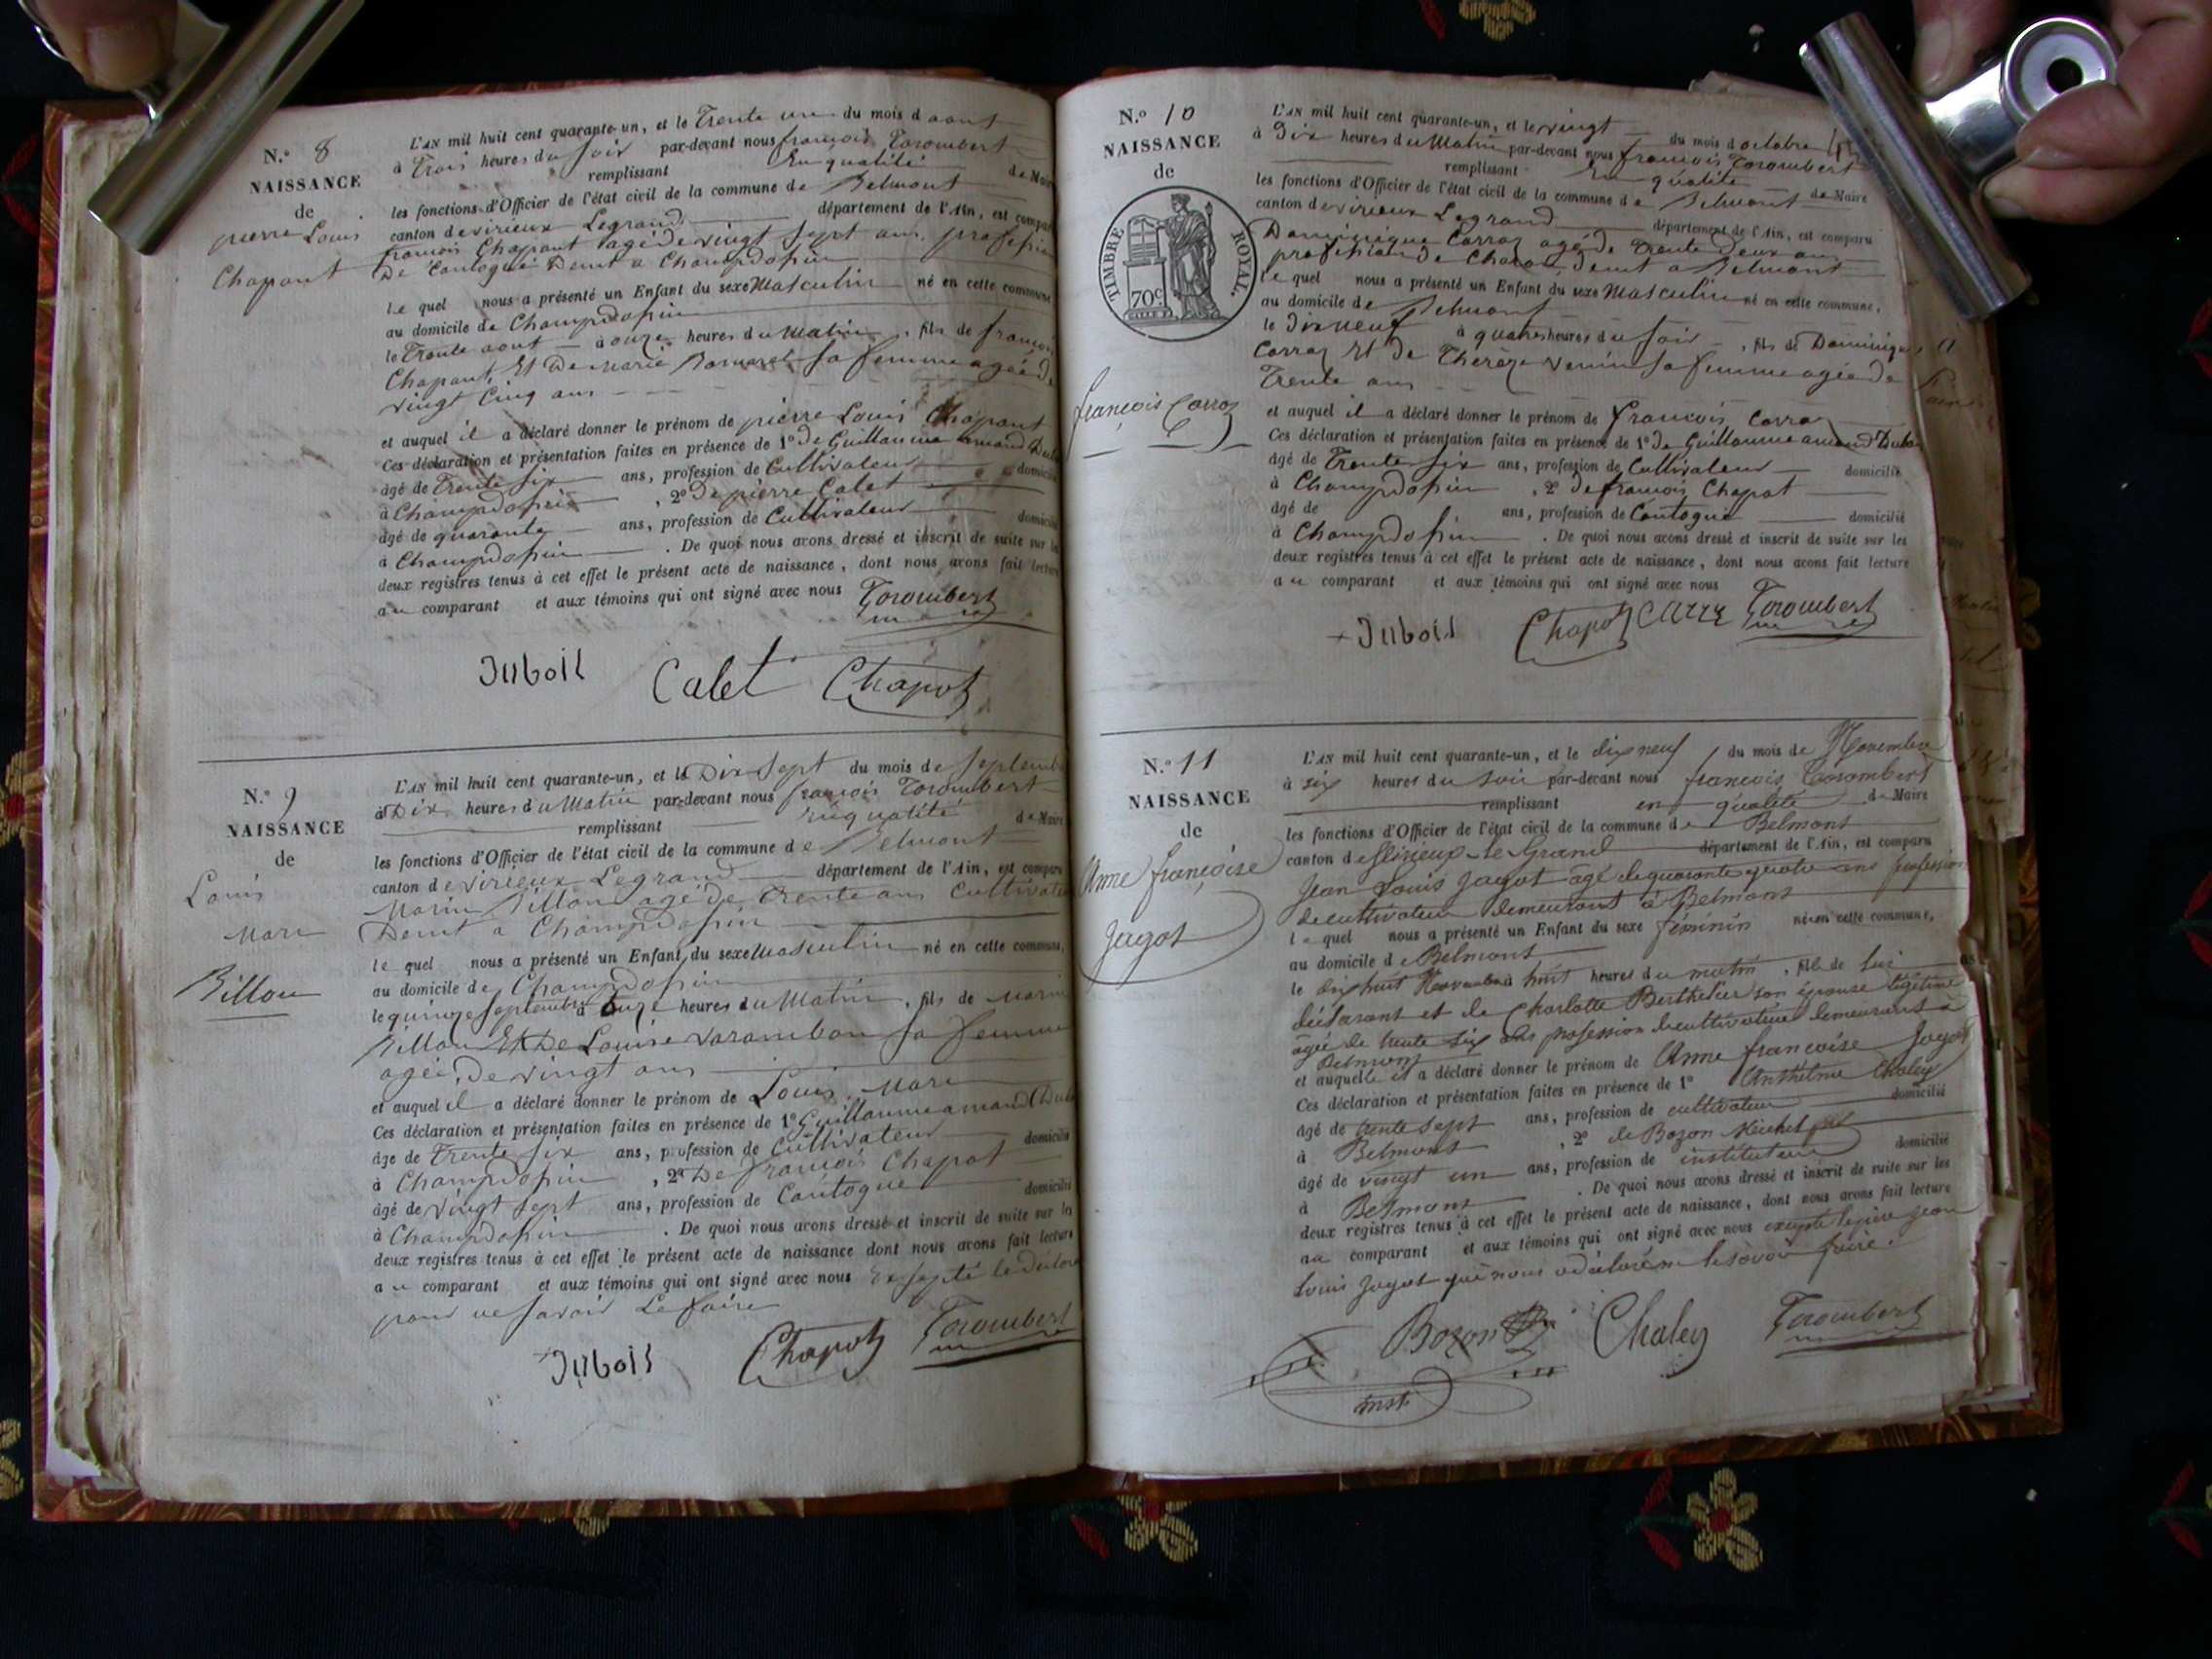 N.º 8
NAISSANCE
de
pierre Louis
Chapant
L'AN mil huit cent quarante-un, et le Trente un du mois d aout
à Trois heures du soir par-devant nous françois Torombert
remplissant En qualité de Maire
les fonctions d'Officier de l'état civil de la commune de Belmont
canton de virieux Legrand département de l'Ain, est comparu
françois Chapant agé de vingt sept ans, profession
De Demt a Champdosin
Le quel nous a présenté un Enfant du sexe Masculin né en cette commune
au domicile de Champdosin
le Trente aout à onze heures du Matin, fils de françois
Chapant, Et De Marie sa femme agée de
vingt Cinq ans
et auquel il a déclaré donner le prénom de pierre Louis Chapant
Ces déclaration et présentation faites en présence de 1º De Guillaume amand Dub
âgé de Trente six ans, profession de Cultivateur domicilié
à Champdosin, 2º De pierre Calet
âgé de quarante ans, profession de Cultivateur domicilié
à Champdosin. De quoi nous avons dressé et inscrit de suite sur les
deux registres tenus à cet effet le présent acte de naissance, dont nous avons fait lecture
au comparant et aux témoins qui ont signé avec nous Torombert
Dubois Calet Chapot
N.º 9
NAISSANCE
de
Louis
Mari
Billon
L'AN mil huit cent quarante-un, et le Dix Sept du mois de Septemb
à Dix heures du Matin par-devant nous françois Torombert
remplissant En qualité de Maire
les fonctions d'Officier de l'état civil de la commune de Belmont
canton de virieux Legrand département de l'Ain, est comparu
Marin Billon agé de Trente ans Cultivate
Demt a Champdosin
le quel nous a présenté un Enfant du sexe Masculin né en cette commune,
au domicile de Champdosin
le quinze Septembre à onze heures du Matin, fils de Marin
Billon Et De Louise varambon sa femme
agée, de vingt ans
et auquel il a déclaré donner le prénom de Louis Mari
Ces déclaration et présentation faites en présence de 1º Guillaume amand Dub
âgé de Trente six ans, profession de Cultivateur domicilié
à Champdosin, 2º De françois Chapot
âgé de vingt sept ans, profession de domicilié
à Champdosin. De quoi nous avons dressé et inscrit de suite sur les
deux registres tenus à cet effet le présent acte de naissance dont nous avons fait lecture
au comparant et aux témoins qui ont signé avec nous Exsepté le
pour ne savoir Le faire
Dubois Chapot Torombert
N.º 10
NAISSANCE
de
TIMBRE ROYAL.
70c
françois Carraz
L'AN mil huit cent quarante-un, et le vingt du mois d octobre
à Dix heures du Matin par-devant nous françois Torombert
remplissant En qualité de Maire
les fonctions d'Officier de l'état civil de la commune de Belmont
canton de virieux Legrand département de l'Ain, est comparu
Dominique Carraz agé de Trente Deux ans
profession de demt a Belmont
Le quel nous a présenté un Enfant du sexe Masculin né en cette commune,
au domicile de Belmont
le Dix neuf à quatre heures du soir, fils de Dominique
Carraz Et de Thereze sa femme agée de
Trente ans
et auquel il a déclaré donner le prénom de françois Carraz
Ces déclaration et présentation faites en présence de 1º De Guillaume amand Dubo
âgé de Trente six ans, profession de Cultivateur domicilié
à Champdosin, 2º De françois Chapot
âgé de ans, profession de domicilié
à Champdosin. De quoi nous avons dressé et inscrit de suite sur les
deux registres tenus à cet effet le présent acte de naissance, dont nous avons fait lecture
au comparant et aux témoins qui ont signé avec nous
Dubois Chapot Torombert
N.º 11
NAISSANCE
de
Anne françoise
Jagot
L'AN mil huit cent quarante-un, et le dix neuf du mois de Novembre
à six heures du soir par-devant nous françois Torombert
remplissant en qualité de Maire
les fonctions d'Officier de l'état civil de la commune de Belmont
canton de Virieux-le-Grand département de l'Ain, est comparu
Jean Louis Jagot agé de quarante quatre ans profession
de cultivateur demeurant à Belmont
le quel nous a présenté un Enfant du sexe féminin né en cette commune,
au domicile de Belmont
le dix huit Novembre à huit heures du matin, fille de lui
déclarant et de Charlotte Berthelier son épouse légitime
agée de trente six ans profession de cultivateur demeurant à
Belmont
et auquelle il a déclaré donner le prénom de Anne françoise Jagot
Ces déclaration et présentation faites en présence de 1º Anthelme Chaley
âgé de trente sept ans, profession de cultivateur domicilié
à Belmont, 2º de Bozon Michel
âgé de vingt un ans, profession de instituteur domicilié
à Belmont. De quoi nous avons dressé et inscrit de suite sur les
deux registres tenus à cet effet le présent acte de naissance, dont nous avons fait lecture
au comparant et aux témoins qui ont signé avec nous excepté le père Jean
Louis Jagot qui nous a déclaré ne le savoir faire.
Bozon Chaley Torombert
inst.